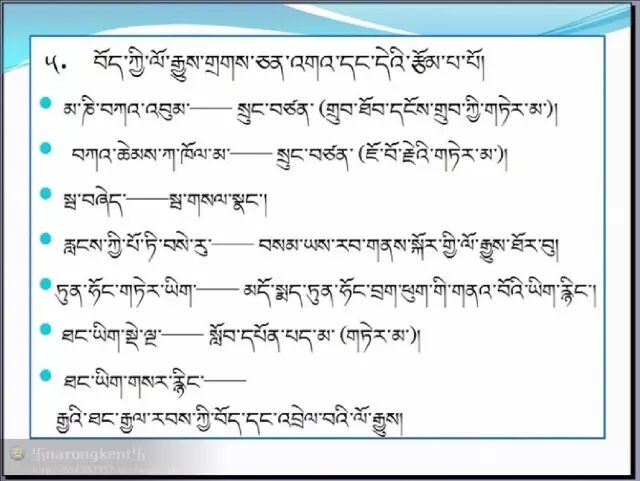 ༥. བོད་ཀྱི་ལོ་རྒྱུས་གྲགས་ཅན་འགའ་དང་དེའི་རྩོམ་པ་པོ།
མ་ཎི་བཀའ་འབུམ་—— སྲུང་བཙན་ (གྲུབ་ཐོབ་དངོས་གྲུབ་ཀྱི་གཏེར་མ་)།
བཀའ་ཆེམས་ཀ་ཁོལ་མ་—— སྲུང་བཙན་ (ཇོ་བོ་རྗེའི་གཏེར་མ་)།
སྦ་བཞེད་——སྦ་གསལ་སྣང་།
རླངས་ཀྱི་པོ་ཏི་བསེ་རུ་—— བསམ་ཡས་རབ་གནས་སྐོར་གྱི་ལོ་རྒྱུས་ཐོར་བུ།
ཏུན་ཧོང་གཏེར་ཡིག་—— མདོ་སྨད་ཏུན་ཧོང་བྲག་ཕུག་གི་གནའ་བོའི་ཡིག་རྙིང་།
ཐང་ཡིག་སྡེ་ལྔ་—— སློབ་དཔོན་པད་མ་ (གཏེར་མ་)།
ཐང་ཡིག་གསར་རྙིང་——
རྒྱའི་ཐང་རྒྱལ་རབས་ཀྱི་བོད་དང་འབྲེལ་བའི་ལོ་རྒྱུས།
卐narongkent卐